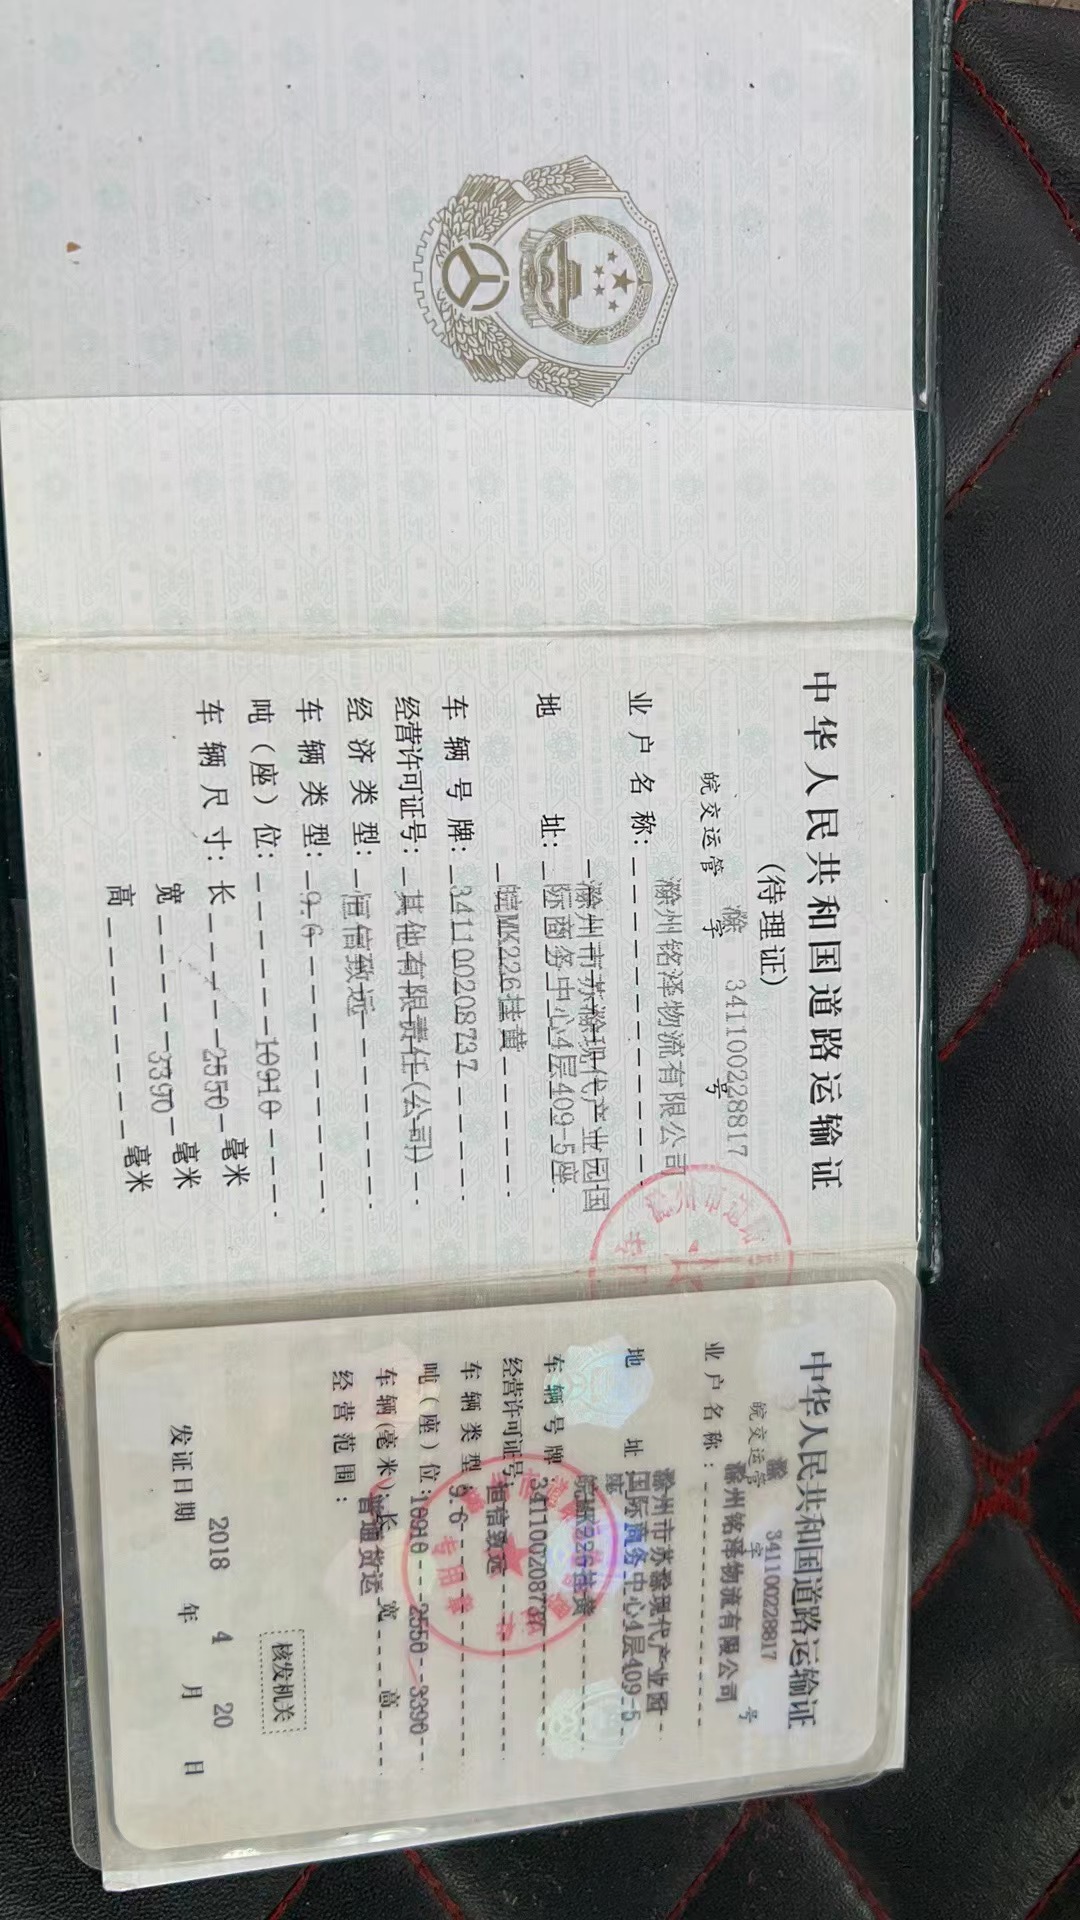 中华人民共和国道路运输证
(待理证)
皖交运管 滁 字 341100228817 号
业户名称: 滁州铭泽物流有限公司
地址: 滁州市苏滁现代产业园国
际商务中心4层409-5座
皖MK226挂黄
车辆号牌: 341100208737
经营许可证号: 其他有限责任(公司)
经济类型: 恒信致远
车辆类型: 9.6
吨(座)位: 10910
车辆尺寸: 长 2550 毫米
宽 3390 毫米
高 毫米
中华人民共和国道路运输证
皖交运管 滁 字 341100228817 号
业户名称: 滁州铭泽物流有限公司
地址 滁州市苏滁现代产业园
国际商务中心4层409-5
皖MK226挂黄
车辆号牌 341100208737
经营许可证号: 恒信致远
车辆类型 9.6
吨(座)位: 10910 2550 3390
车辆(毫米): 长 宽 高
经营范围: 普通货运
核发机关
发证日期 2018 年 4 月 20 日
专用章